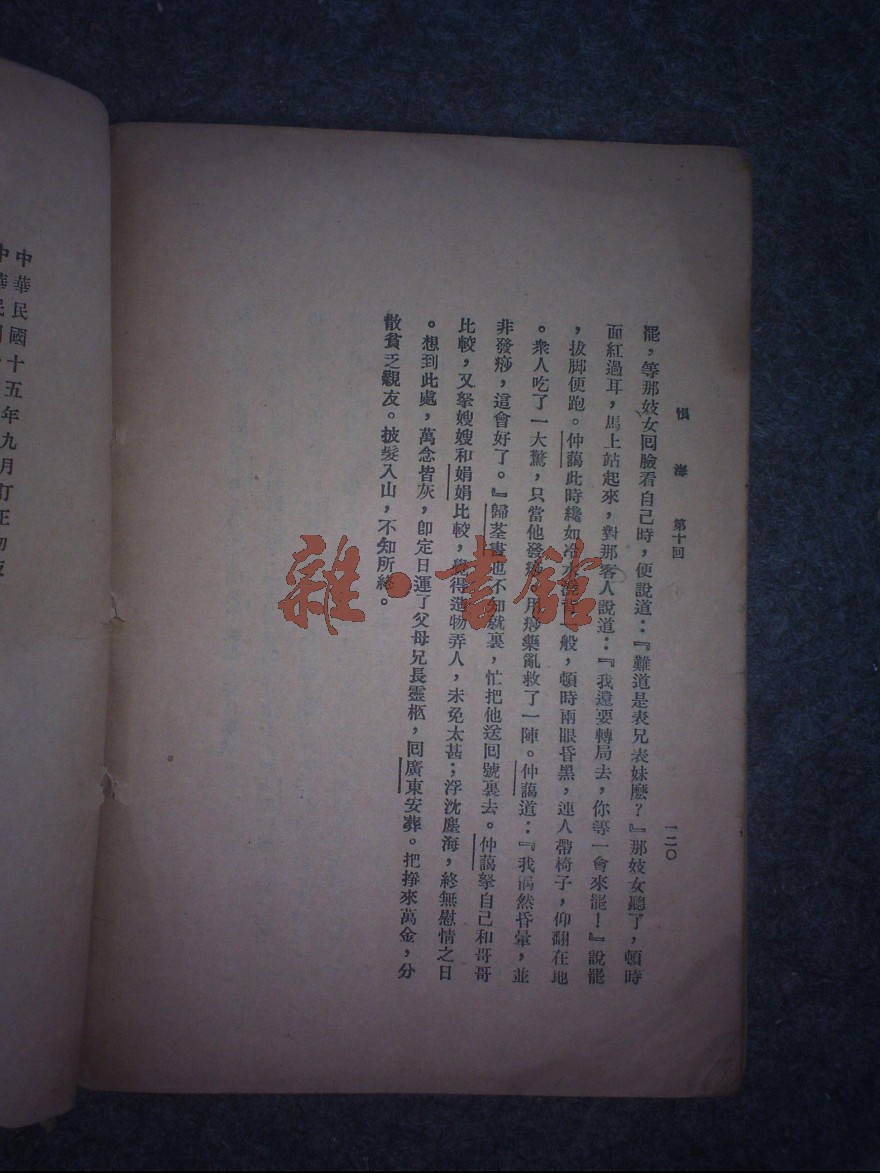 恨海　第十回
一二〇
罷，等那妓女回臉看自己時，便說道：『難道是表兄表妹麽？』那妓女聽了，頓時
面紅過耳，馬上站起來，對那客人說道：『我還要轉局去，你等一會來罷！』說罷
，拔脚便跑。仲藹此時纔如冷水澆背一般，頓時兩眼昏黑，連人帶椅子，仰翻在地
。衆人吃了一大驚，只當他發痧，用痧藥亂救了一陣。仲藹道：『我偶然昏暈，並
非發痧，這會好了。』歸荃書也不知就裏，忙把他送回號裏去。仲藹拏自己和哥哥
比較，又拏嫂嫂和娟娟比較，覺得造物弄人，未免太甚；浮沈塵海，終無慰情之日
。想到此處，萬念皆灰，卽定日運了父母兄長靈柩，回廣東安葬。把掙來萬金，分
散貧乏親友。披髮入山，不知所終。
中華民國十五年九月訂正初版
中華民
雜·書館